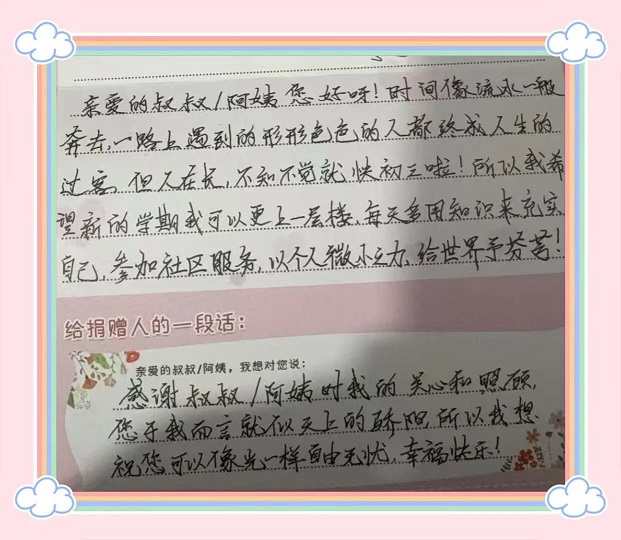 亲爱的叔叔/阿姨您好呀!时间像流水一般
奔去,一路上遇到的形形色色的人都终成人生的
过客,但人在长,不知不觉就快初三啦!所以我希
望新的学期我可以更上一层楼,每天多用知识来充实
自己,参加社区服务,以个人微小之力,给世界予芬芳!
给捐赠人的一段话:
亲爱的叔叔/阿姨,我想对您说:
感谢叔叔/阿姨对我的关心和照顾,
您于我而言就似天上的骄阳,所以我想
祝您可以像光一样自由无忧,幸福快乐!